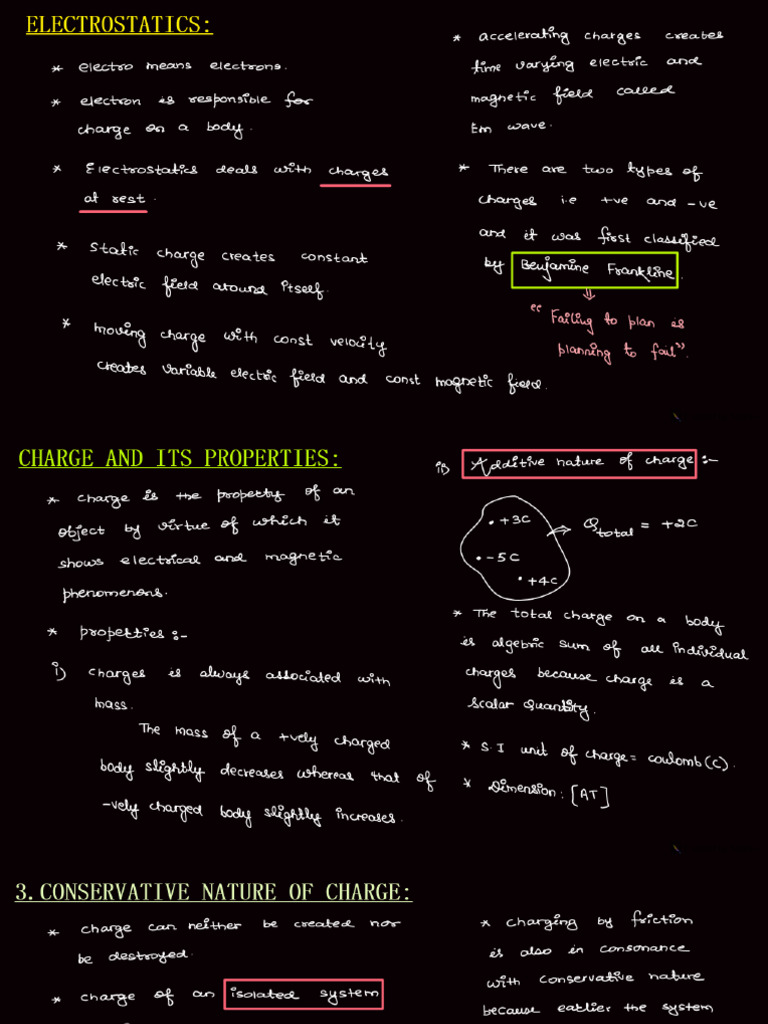 ELECTROSTATICS:
* electro means electrons.
* electron is responsible for
charge on a body.
* Electrostatics deals with charges
at rest.
* Static charge creates constant
electric field around itself.
* moving charge with const velocity
creates variable electric field and const magnetic field.
* accelerating charges creates
time varying electric and
magnetic field called
Em wave.
* There are two types of
charges i.e +ve and -ve
and it was first classified
by Benjamine Frankline.
⇓
"Failing to plan is
planning to fail".
CHARGE AND ITS PROPERTIES:
* charge is the property of an
object by virtue of which it
shows electrical and magnetic
phenomenons.
* properties:-
i) charges is always associated with
mass.
The mass of a +vely charged
body slightly decreases whereas that of
-vely charged body slightly increases.
ii) Additive nature of charge :-
• +3C
• -5C
• +4C
→ Q total = +2C
* The total charge on a body
is algebric sum of all individual
charges because charge is a
scalar quantity.
* S.I unit of charge = coulomb(C).
* Dimension: [AT]
3.CONSERVATIVE NATURE OF CHARGE:
* charge can neither be created nor
be destroyed.
* charge of an isolated system
* charging by friction
is also in consonance
with conservative nature
because earlier the system